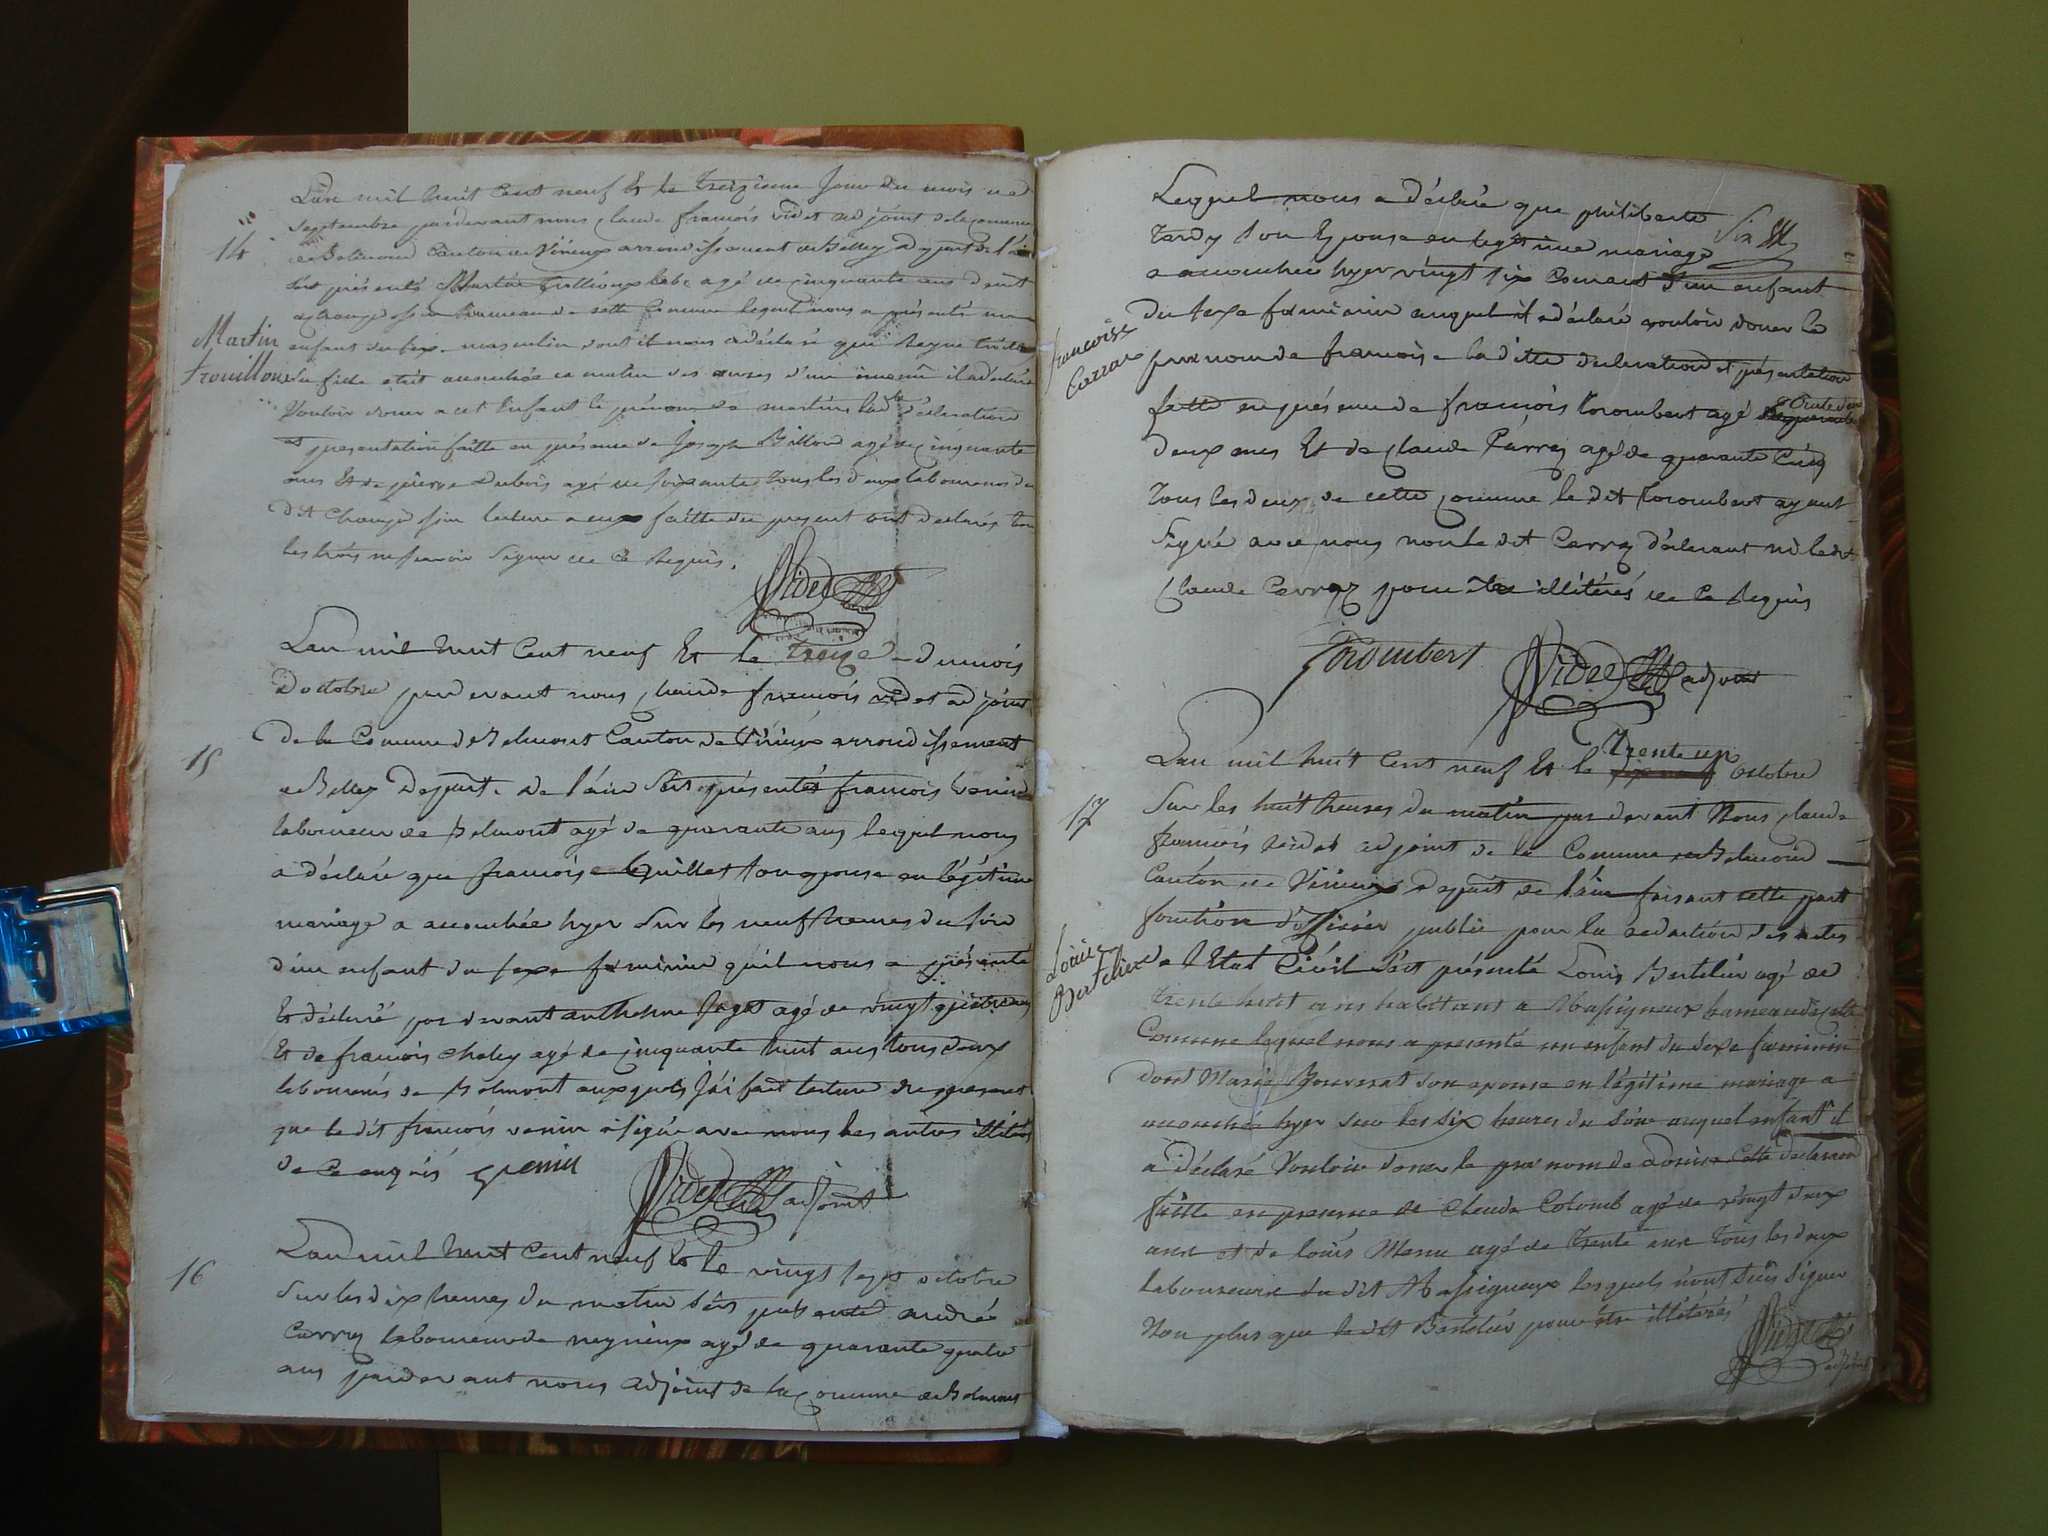 L'an mil huit Cent neuf Et le treizieme Jour du mois de
Septembre pardevant nous Claude francois videt adjoint de la comune
14
de Belmond Canton de Virieux arrondissement de Belley Depart. de l'ain
S'est présenté Martin agé de cinquante ans
hameau de cette Commune lequel nous a présenté un
Martin
Trouillou
enfant du sexe masculin dont il nous a déclaré que Reyne
sa fille etait accouchée ce matin des d'un il a déclaré
Vouloir doner a cet Enfant le prénom de martin lad.te déclaration
et presentation faitte en présence de Joseph Billion agé de cinquante
ans Et de pierre Dubois agé de soixante Tous les deux laboureurs du
dit lecture a eux faitte du present ont declarés tous
les trois ne savoir Signer de Ce Requis.
Videt
L'an mil huit Cent neuf Et le treize du mois
D'octobre pardevant nous Claude francois videt adjoint
de la Comune de Belmont Canton de Virieux arrondissement
15
de Belley Depart. de l'ain S'est présenté francois venin
laboureur de Belmont agé de quarante ans lequel nous
a déclaré que francoise Guillet son epouse en légitime
mariage a accouchée hyer Sur les neuf heures du soir
d'un enfant du sexe feminin qu'il nous a présenté
Et déclaré par devant anthelme agé de vingt quatre ans
Et de francois chaley agé de cinquante huit ans tous deux
laboureurs de Belmont auxquels J'ai fait lecture du present
que le dit francois venin a signé avec nous les autres illitérés
de Ce enquis venin
Videt adjoint
16
L'an mil huit Cent neuf Et le vingt sept octobre
Sur les dix heures du matin s'est présenté andré
Carraz laboureur de neyrieux agé de quarante quatre
ans pardevant nous adjoint de la Comune de Belmont
Lequel nous a déclaré que philiberte
tardy Son Epouse en legitime mariage
a accouchée hyer vingt six Courant d'un enfant
francoise
Carraz
du sexe feminin auquel il a déclaré vouloir doner le
prenom de francoise la ditte declaration et présentation
faitte en présence de francois Trombert agé
deux ans Et de Claude Carraz agé de quarante Cinq
Tous les deux de cette Comune le dit Trombert ayant
Signé avec nous non le dit Carraz déclarant ni ledit
Claude Carraz pour etre illitérés de Ce Requis
Trombert Videt adjoint
Trente un
L'an mil huit Cent neuf Et le Octobre
17
Sur les huit heures du matin par devant Nous Claude
francois videt adjoint de la Comune de Belmond
Canton de Virieux Depart de l'ain faisant cette part
fonction d'officier public pour la redaction des actes
Louise
Bertelier
de l'Etat Civil S'est présenté Louis Bertelier agé de
trente huit ans habitant a Massigneux hameau de cette
Comune lequel nous a presenté un enfant du sexe feminin
dont Marie Bouvrat son epouse en légitime mariage a
accouchée hyer sur les six heures du soir auquel enfant il
a déclaré Vouloir doner le pre nom de Cette declaration
faitte en presence de Claude Colomb agé de vingt deux
ans et de louis Menu agé de Trente ans tous les deux
laboureurs du dit Massigneux lesquels n'ont sçus signer
Non plus que le dit Bertelier pour être illitérés
Videt
adjoint